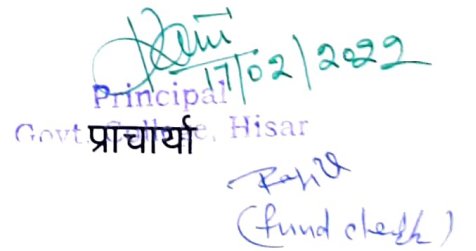 17/02/2022
Principal
Govt. College, Hisar
प्राचार्या
(fund check)